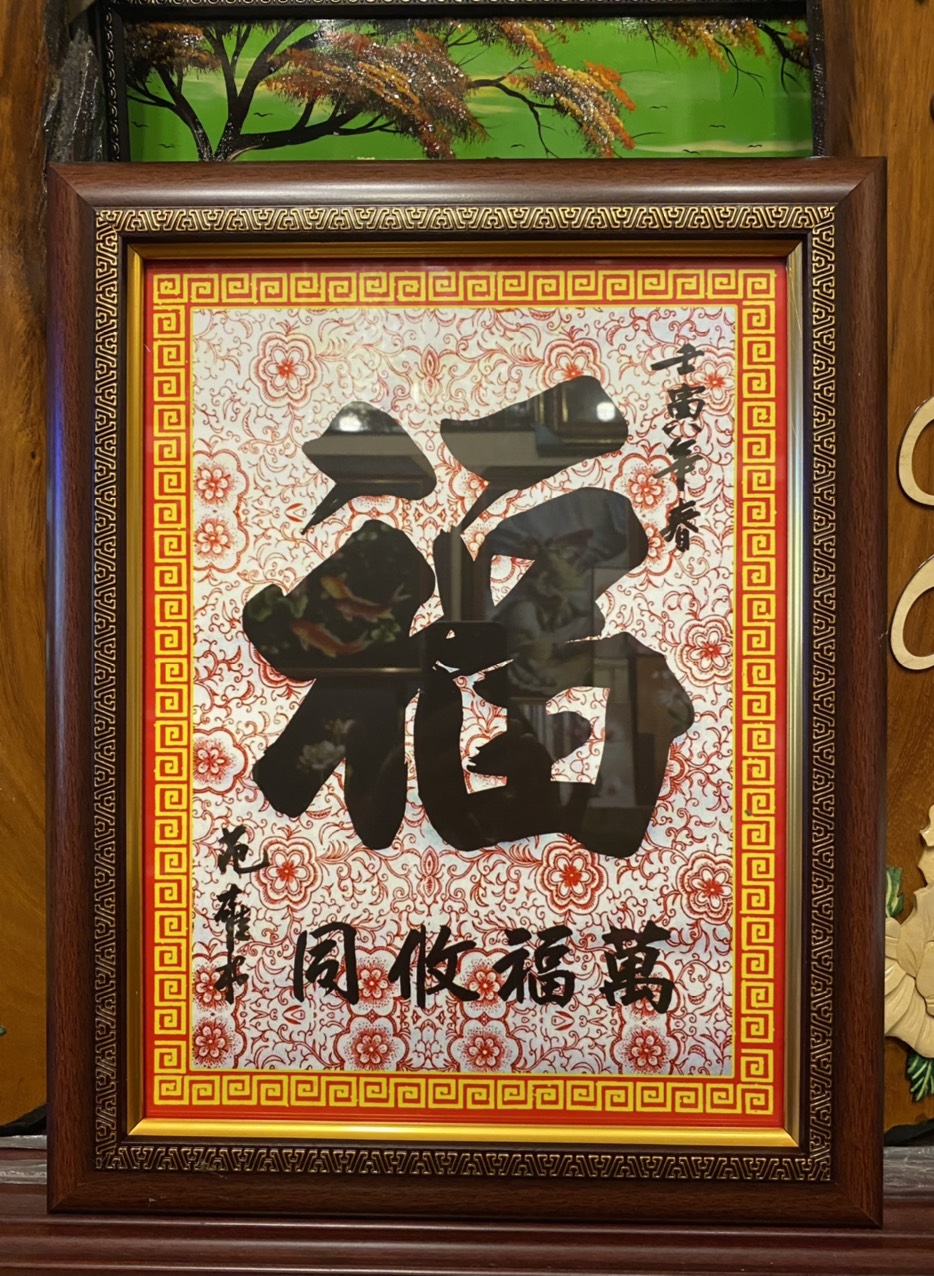 壬寅年春
福
萬福攸同
范